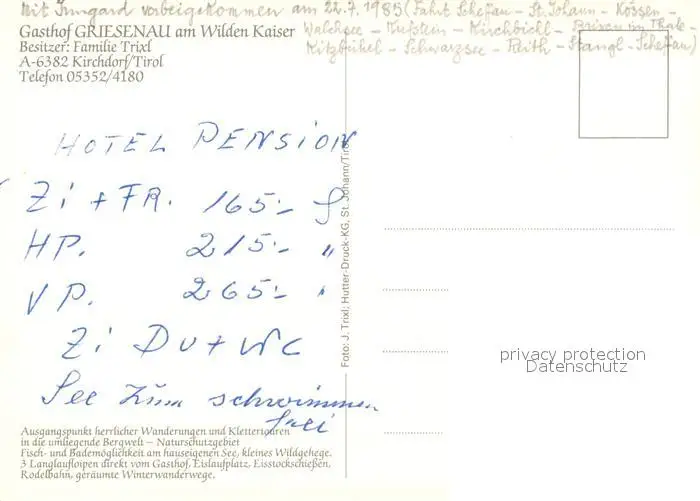 Mit Irmgard vorbeigekommen am 22.7.1985 (Fahrt Scheffau - St. Johann - Kössen -
Walchsee - Kufstein - Kirchbichl - Brixen im Thale -
Kitzbühel - Schwarzsee - Reith - Stangl - Scheffau)
Gasthof GRIESENAU am Wilden Kaiser
Besitzer: Familie Trixl
A-6382 Kirchdorf/Tirol
Telefon 05352/4180
HOTEL PENSION
Zi + FR. 165.- S
HP. 215.- "
VP. 265.- "
Zi DU + WC
See zum schwimmen
frei
Ausgangspunkt herrlicher Wanderungen und Klettertouren
in die umliegende Bergwelt – Naturschutzgebiet
Fisch- und Bademöglichkeit am hauseigenen See, kleines Wildgehege.
3 Langlaufloipen direkt vom Gasthof, Eislaufplatz, Eisstockschießen,
Rodelbahn, geräumte Winterwanderwege.
Foto: J. Trixl; Hutter-Druck-KG, St. Johann/Tirol
privacy protection
Datenschutz